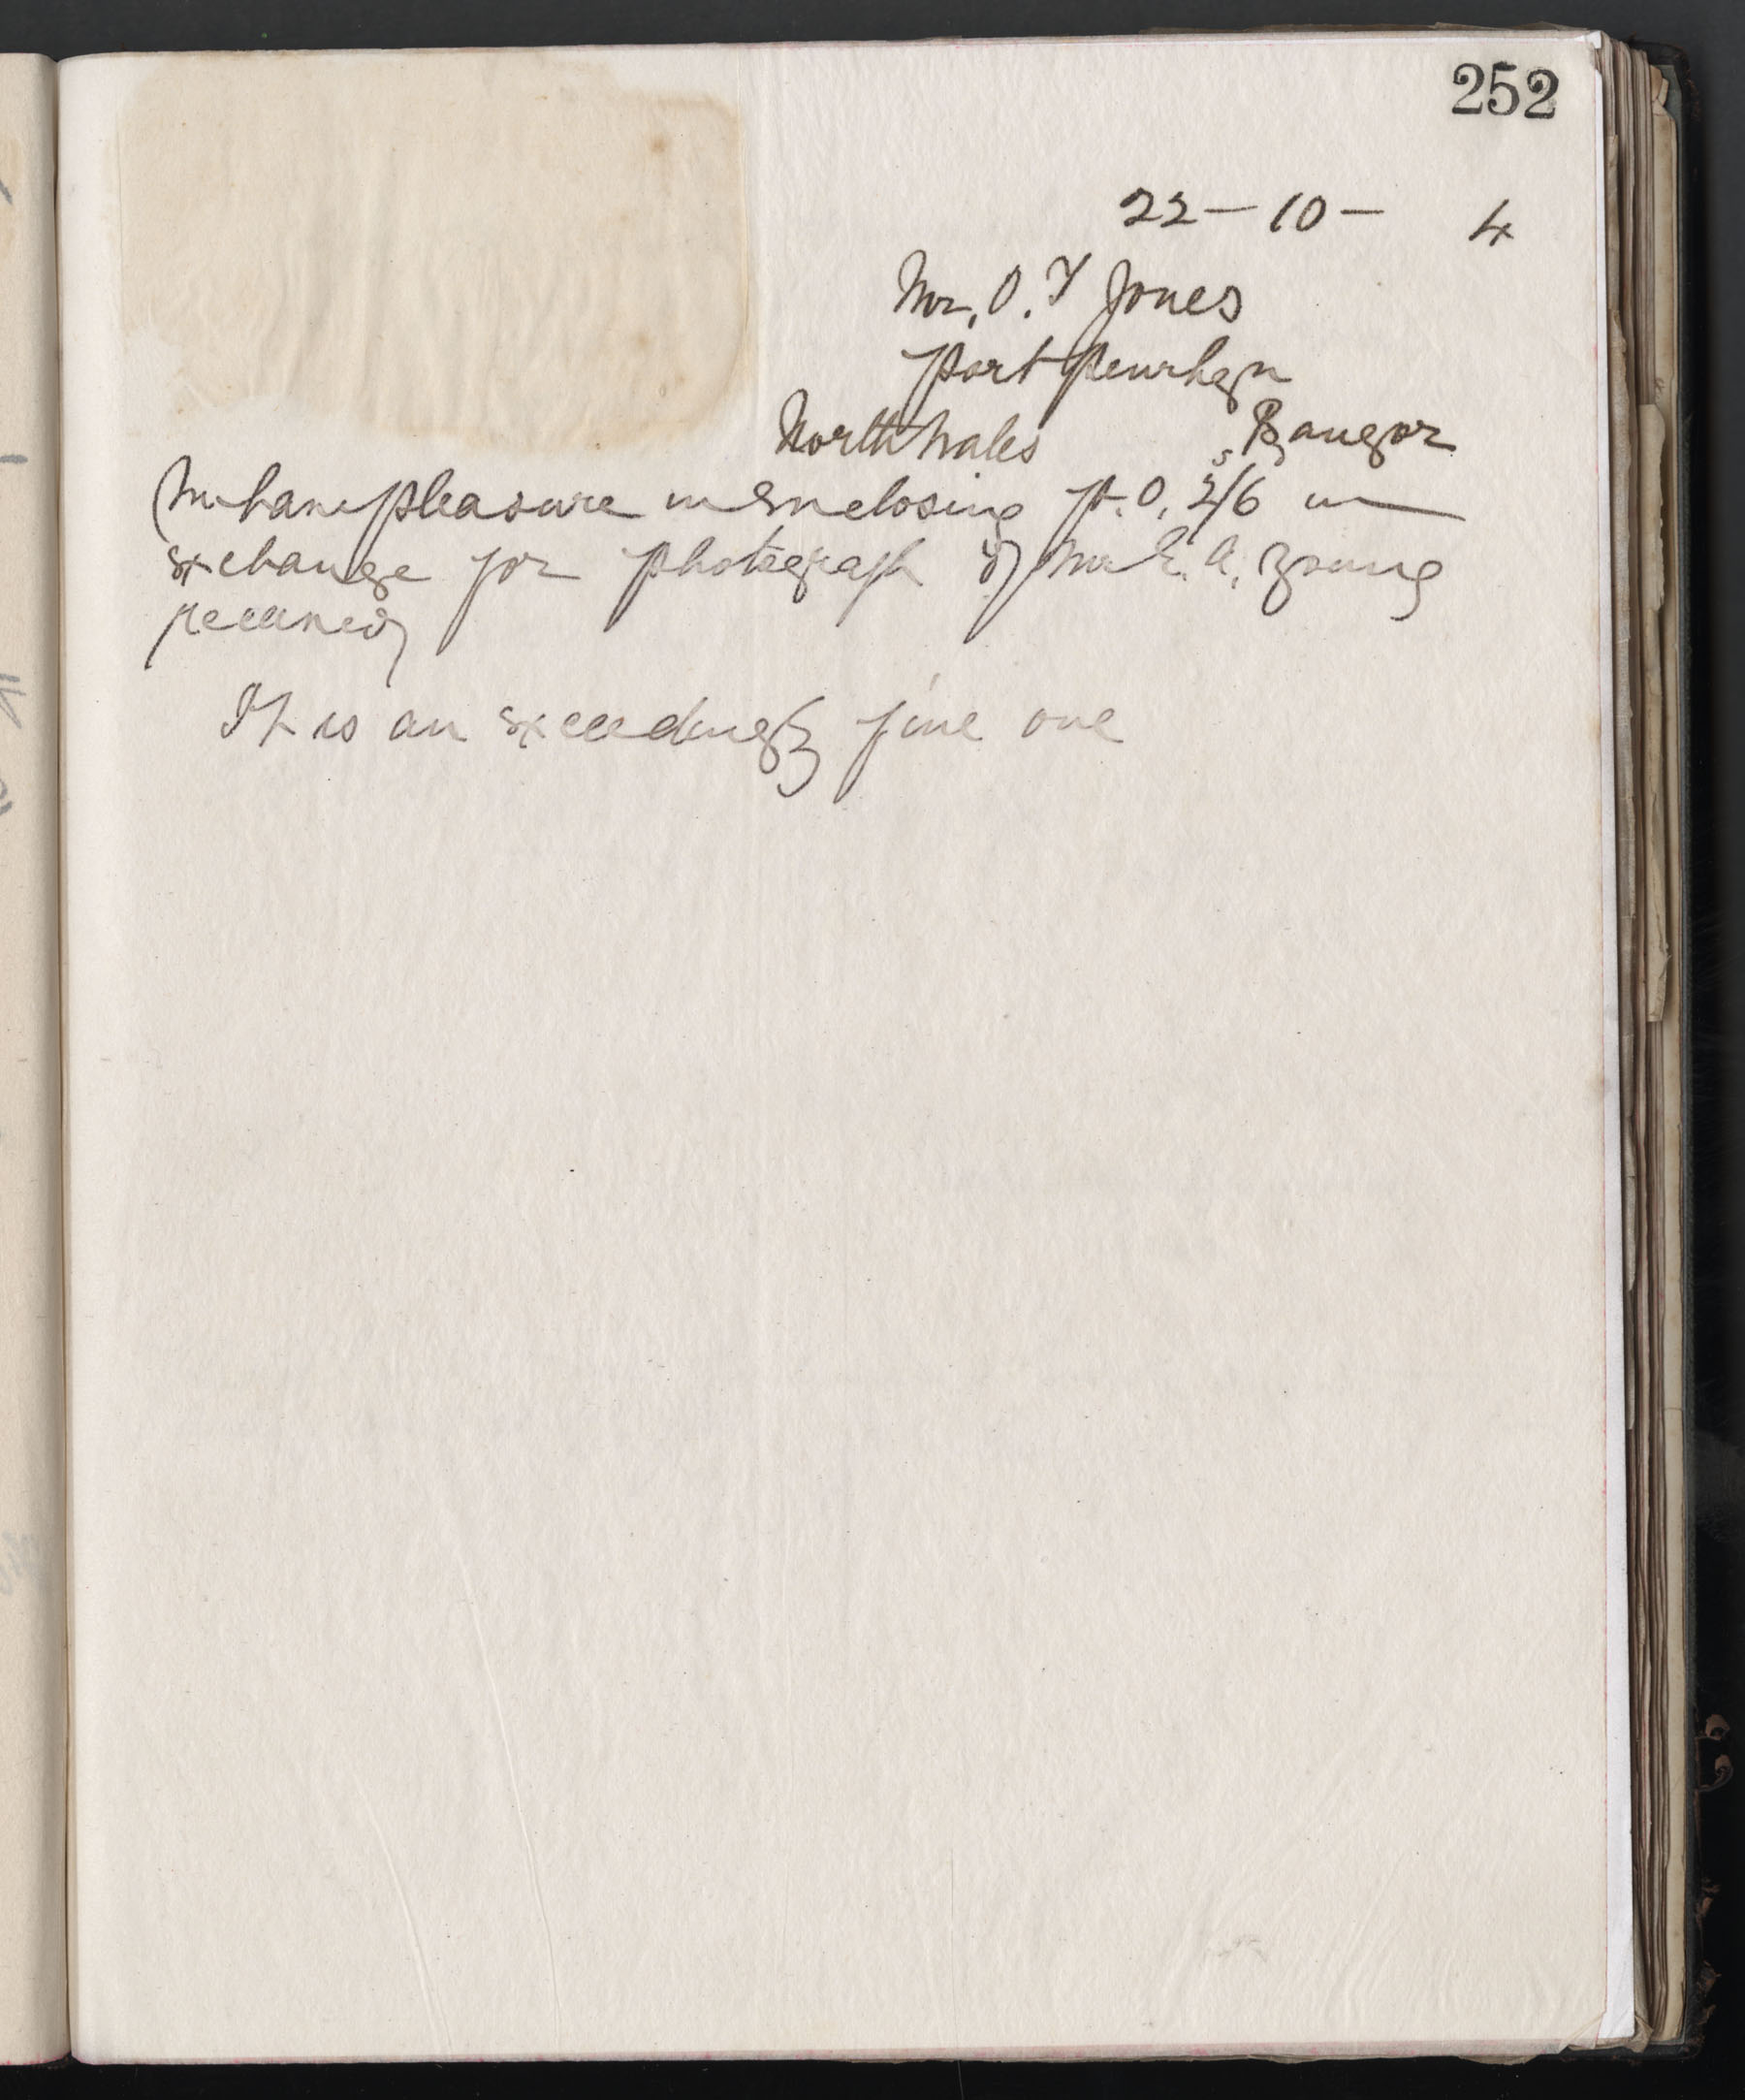 252
22 - 10 - 4
Mr. O. T Jones
Port Penrhyn
North Wales Bangor
We have pleasure in Enclosing P.O. 2/6 in
exchange for photograph of Mr E. A. Young
received
It is an exceedingly fine one